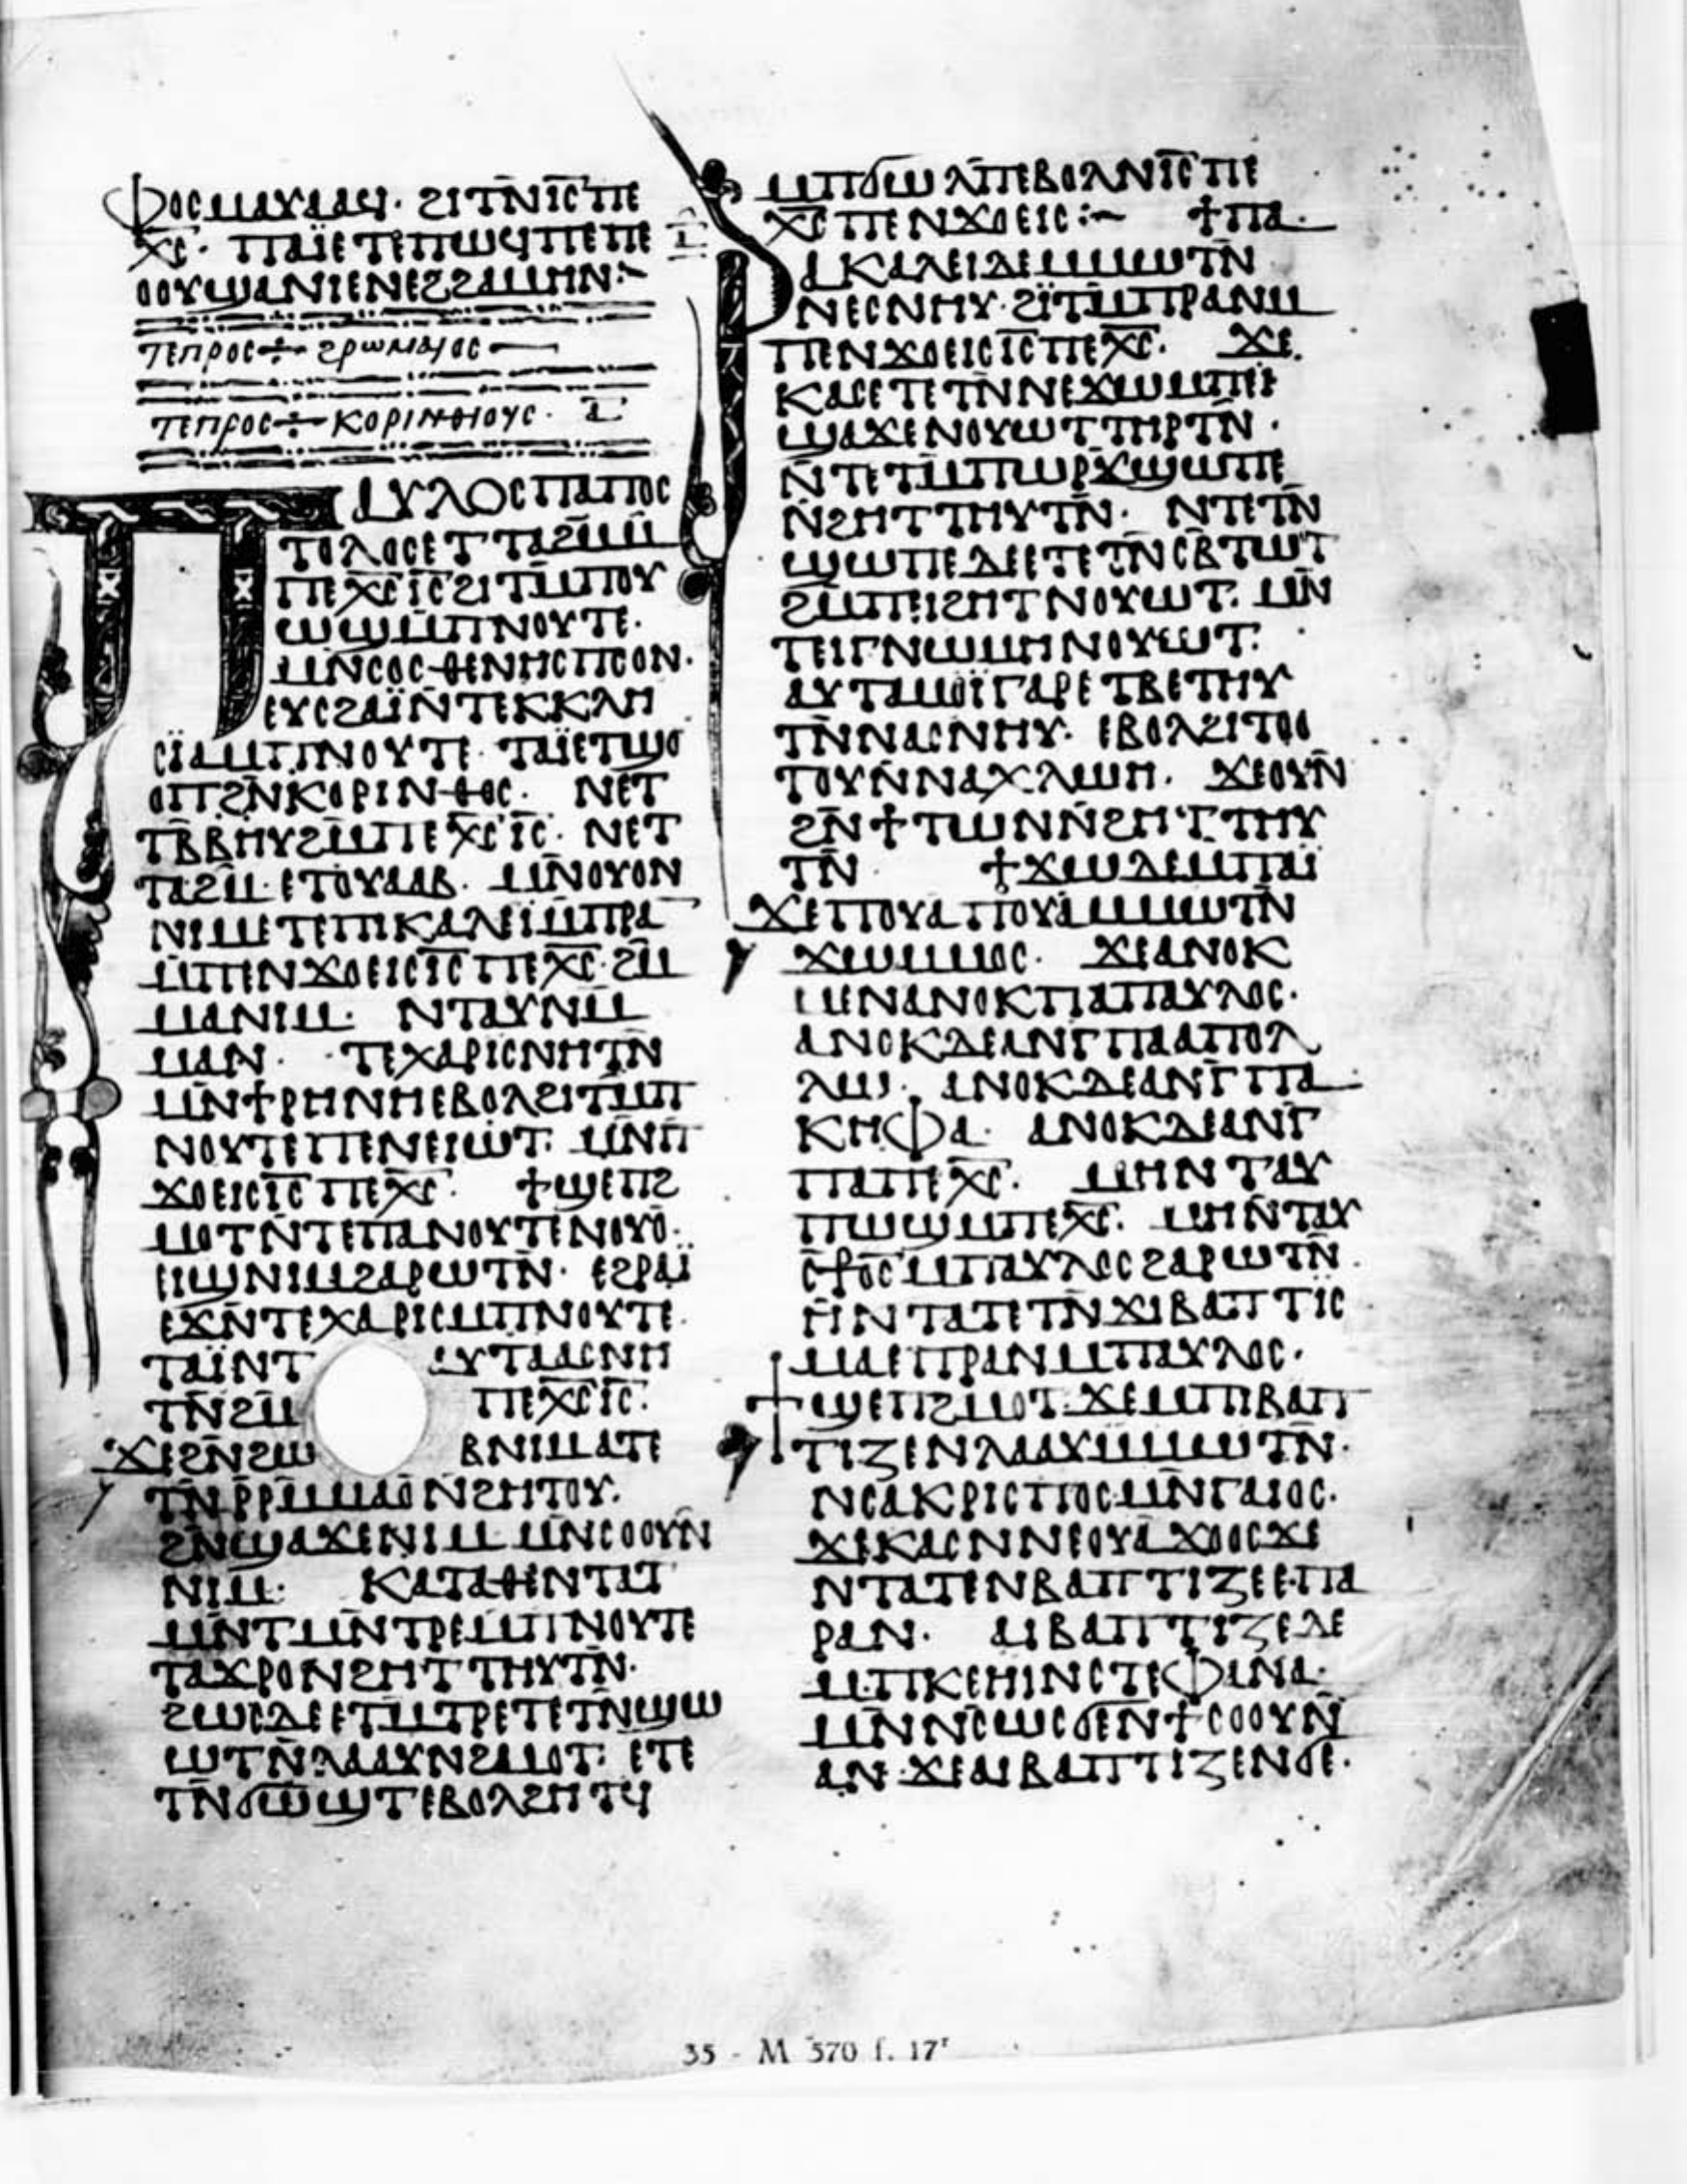 ⲫⲟⲥⲙⲁⲩⲁⲁϥ· ϩⲓⲧⲛ̄ⲓ̅ⲥ̅ⲡⲉ
ⲭ̅ⲥ̅· ⲡⲁⲓ̈ⲉⲧⲉⲡⲱϥⲡⲉⲡⲉ
ⲟⲟⲩϣⲁⲛⲓⲉⲛⲉϩϩⲁⲙⲏⲛ:~
ⲧⲉⲡⲣⲟⲥ÷ϩⲣⲱⲙⲁⲓⲟⲥ—
ⲧⲉⲡⲣⲟⲥ÷ⲕⲟⲣⲓⲛⲑⲓⲟⲩⲥ· ⲁ̅
ⲡⲁⲩⲗⲟⲥⲡⲁⲡⲟⲥ
ⲧⲟⲗⲟⲥⲉⲧⲧⲁϩⲙ̄ⲙ̄
ⲡⲉⲭ̅ⲥ̅ⲓ̅ⲥ̅ϩⲓⲧⲙ̄ⲡⲟⲩ
ⲱϣⲙ̄ⲡⲛⲟⲩⲧⲉ·
ⲙⲛ̄ⲥⲟⲥⲑⲉⲛⲏⲥⲡⲥⲟⲛ·
ⲉⲩⲥϩⲁⲓ̈ⲛ̄ⲧⲉⲕⲕⲗⲏ
ⲥⲓ̈ⲁⲙⲡⲛⲟⲩⲧⲉ· ⲧⲁⲓ̈ⲉⲧϣⲟ
ⲟⲡϩⲛ̄ⲕⲟⲣⲓⲛⲑⲟⲥ· ⲛⲉⲧ
ⲧⲃ̄ⲃⲏⲩϩⲙ̄ⲡⲉⲭ̅ⲥ̅ⲓ̅ⲥ̅· ⲛⲉⲧ
ⲧⲁϩⲙ· ⲉⲧⲟⲩⲁⲁⲃ· ⲙⲛ̄ⲟⲩⲟⲛ
ⲛⲓⲙⲉⲧⲉⲡⲓⲕⲁⲗⲉⲓⲙ̄ⲡⲣⲁ
ⲙ̄ⲡⲉⲛϫⲟⲉⲓⲥⲓ̅ⲥ̅ⲡⲉⲭ̅ⲥ̅·ϩⲙ̄
ⲙⲁⲛⲓⲙ· ⲛⲧⲁⲩⲛⲙ̄
ⲙⲁⲛ· ·ⲧⲉⲭⲁⲣⲓⲥⲛⲏⲧⲛ̄
ⲙⲛ̄ϯⲣⲏⲛⲏⲉⲃⲟⲗϩⲓⲧⲙ̄ⲡ
ⲛⲟⲩⲧⲉⲡⲉⲛⲉⲓⲱⲧ· ⲙⲛ̄ⲡ̄
ϫⲟⲉⲓⲥⲓ̅ⲥ̅ⲡⲉⲭ̅ⲥ̅· ϯϣⲉⲡϩ
ⲙⲟⲧⲛ̄ⲧⲉⲡⲁⲛⲟⲩⲧⲉⲛⲟⲩⲟ
ⲉⲓϣⲛⲓⲙϩⲁⲣⲱⲧⲛ̄· ⲉϩⲣⲁⲓ̈
ⲉϫⲛ̄ⲧⲉⲭⲁⲣⲓⲥⲙⲡⲛⲟⲩⲧⲉ·
ⲧⲁⲓ̈ⲛⲧ ⲁⲩⲧⲁⲁⲥⲛⲏ
ⲧⲛ̄ϩⲙ̄ ⲡⲉⲭ̅ⲥ̅ⲓ̅ⲥ̅·
ϫⲉϩⲛ̄ϩⲱ ⲃⲛⲓⲙⲁⲧⲉ
ⲧⲛ̄ⲣⲣⲙ̄ⲙⲁⲟⲛϩⲏⲧⲟⲩ·
ϩⲛ̄ϣⲁϫⲉⲛⲓⲙ ⲙⲛ̄ⲥⲟⲟⲩⲛ
ⲛⲓⲙ· ⲕⲁⲧⲁⲑⲉⲛⲧⲁⲧ
ⲙⲛ̄ⲧⲙⲛ̄ⲧⲣⲉⲙⲡⲛⲟⲩⲧⲉ
ⲧⲁϫⲣⲟⲛϩⲏⲧⲧⲏⲩⲧⲛ̄·
ϩⲱⲥⲇⲉⲉⲧⲙ̄ⲧⲣⲉⲧⲉⲧⲛ̄ϣⲱ
ⲱⲧⲛ̄ⲗⲁⲁⲩⲛϩⲙⲟⲧ· ⲉⲧⲉ
ⲧⲛ̄ϭⲱϣⲧⲉⲃⲟⲗϩⲏⲧϥ
ⲙⲡϭⲱⲗⲡⲉⲃⲟⲗⲛⲓ̅ⲥ̅ⲡⲉ
ⲭ̅ⲥ̅ⲡⲉⲛϫⲟⲉⲓⲥ:~ ϯⲡⲁ·
ⲣⲁⲕⲁⲗⲉⲓⲇⲉⲙⲙⲱⲧⲛ̄
ⲛⲉⲥⲛⲏⲩ·ϩⲓ̈ⲧⲙ̄ⲡⲣⲁⲛⲙ
ⲡⲉⲛϫⲟⲉⲓⲥⲓ̅ⲥ̅ⲡⲉⲭ̅ⲥ̅· ϫⲉ
ⲕⲁⲥⲉⲧⲉⲧⲛ̄ⲛⲉϫⲱⲙ̄ⲡⲉⲓ
ϣⲁϫⲉⲛⲟⲩⲱⲧⲧⲏⲣⲧⲛ̄·
ⲛ̄ⲧⲉⲧⲙ̄ⲡⲱⲣϫϣⲱⲡⲉ
ⲛ̄ϩⲏⲧⲧⲏⲩⲧⲛ̄· ⲛⲧⲉⲧⲛ̄
ϣⲱⲡⲉⲇⲉⲉⲧⲉⲧⲛ̄ⲥⲃ̄ⲧⲱⲧ
ϩⲙ̄ⲡⲉⲓϩⲏⲧⲛⲟⲩⲱⲧ· ⲙⲛ̄
ⲧⲉⲓⲅⲛⲱⲙⲏⲛⲟⲩⲱⲧ·
ⲁⲩⲧⲁⲙⲟⲓ̈ⲅⲁⲣⲉⲧⲃⲉⲧⲏⲩ
ⲧⲛ̄ⲛⲁⲥⲛⲏⲩ· ⲉⲃⲟⲗϩⲓⲧⲟⲟ
ⲧⲟⲩⲛ̄ⲛⲁⲭⲗⲱⲏ· ϫⲉⲟⲩⲛ̄
ϩⲛ̄ϯⲧⲱⲛⲛ̄ϩⲏⲧⲧⲏⲩ
ⲧⲛ̄ ϯϫⲱⲇⲉⲙⲡⲁⲓ̈
ϫⲉⲡⲟⲩⲁⲡⲟⲩⲁⲙⲙⲱⲧⲛ̄
ϫⲱⲙⲙⲟⲥ· ϫⲉⲁⲛⲟⲕ
ⲙⲉⲛⲁⲛⲟⲕⲡⲁⲡⲁⲩⲗⲟⲥ·
ⲁⲛⲟⲕⲇⲉⲁⲛⲅⲡⲁⲁⲡⲟⲗ
ⲗⲱ· ⲁⲛⲟⲕⲇⲉⲁⲛⲅⲡⲁ
ⲕⲏⲫⲁ· ⲁⲛⲟⲕⲇⲉⲁⲛⲅ
ⲡⲁⲡⲉⲭ̅ⲥ̅· ⲙⲏⲛⲧⲁⲩ
ⲡⲱϣⲙⲡⲉⲭ̅ⲥ̅· ⲙⲏⲛ̄ⲧⲁⲩ
ⲥ̅ⳁⲟ̅ⲥ̅ⲙⲡⲁⲩⲗⲟⲥϩⲁⲣⲱⲧⲛ̄
ⲏⲛⲧⲁⲧⲉⲧⲛ̄ϫⲓⲃⲁⲡⲧⲓⲥ
ⲙⲁⲉⲡⲣⲁⲛⲙⲡⲁⲩⲗⲟⲥ·
ϯϣⲉⲡϩⲙⲟⲧ·ϫⲉⲙⲡⲓⲃⲁⲡ
ⲧⲓⲍⲉⲛⲗⲁⲁⲩⲙⲙⲱⲧⲛ̄·
ⲛⲥⲁⲕⲣⲓⲥⲡⲟⲥⲙⲛ̄ⲅⲁⲓⲟⲥ·
ϫⲉⲕⲁⲥⲛⲛⲉⲟⲩⲁϫⲟⲟⲥϫⲉ
ⲛⲧⲁⲧⲉⲛⲃⲁⲡⲧⲓⲍⲉⲉⲡⲁ
ⲣⲁⲛ· ⲁⲓⲃⲁⲡⲧⲓⲍⲉⲇⲉ
ⲙⲡⲕⲉⲏⲓⲛⲥⲧⲉⲫⲁⲛⲁ·
ⲙⲛ̄ⲛⲥⲱⲥϭⲉⲛϯⲥⲟⲟⲩⲛ̄
ⲁⲛ·ϫⲉⲁⲓⲃⲁⲡⲧⲓⲍⲉⲛϭⲉ·
35 - M 570 f. 17ʳ